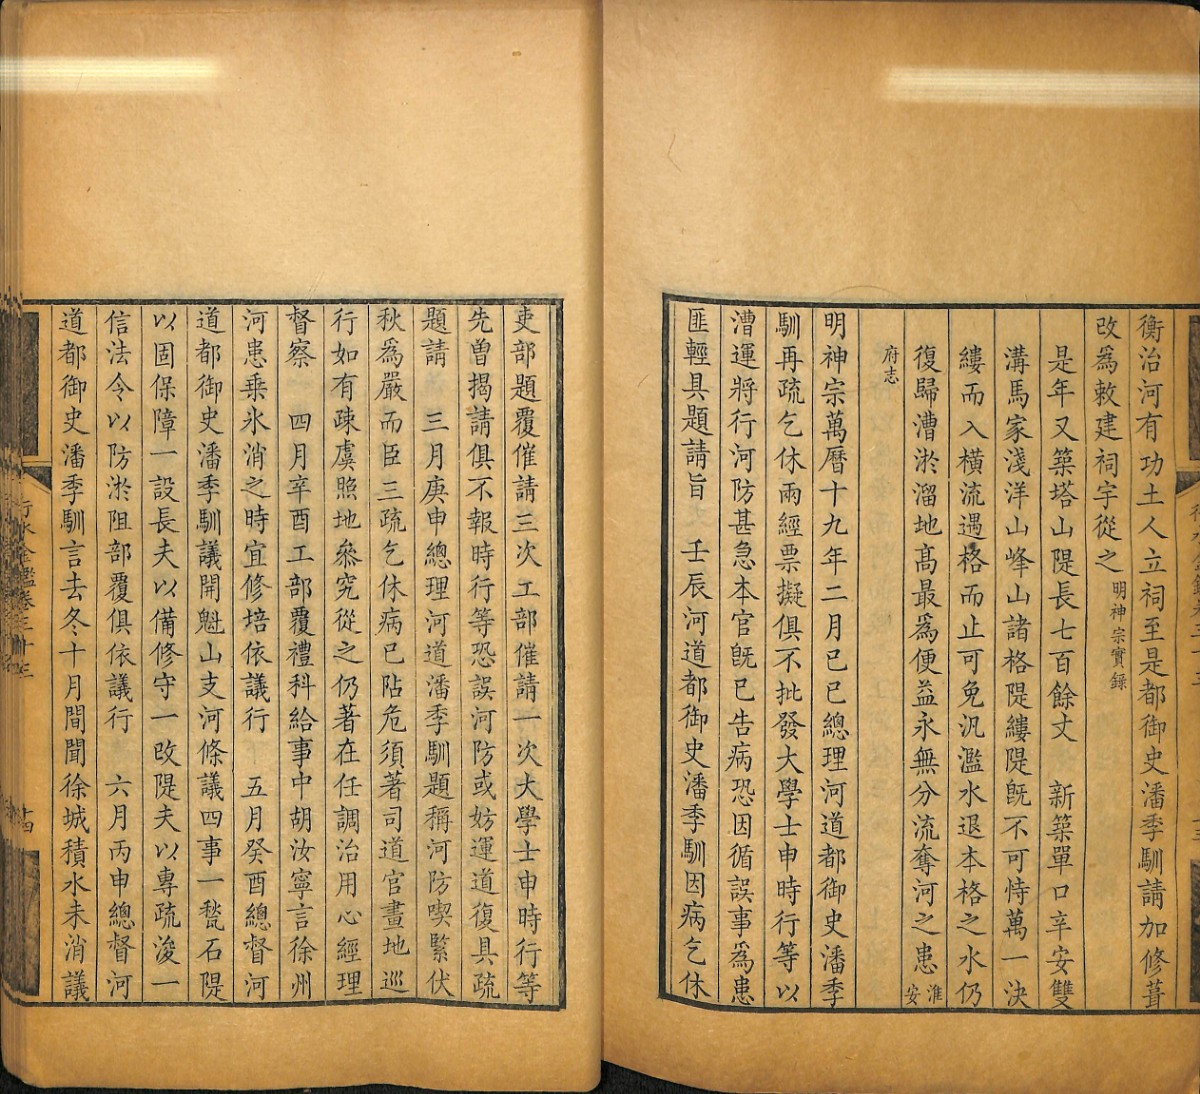 衡治河有功土人立祠至是都御史潘季馴請加修葺
改為敕建祠宇從之明神宗實録
是年又築塔山隄長七百餘丈　新築單口辛安雙
溝馬家淺洋山峰山諸格隄縷隄旣不可恃萬一決
縷而入橫流遇格而止可免汎濫水退本格之水仍
復歸漕淤溜地髙最為便益永無分流奪河之患淮安
府志
明神宗萬曆十九年二月己巳總理河道都御史潘季
馴再疏乞休兩經票擬俱不批發大學士申時行等以
漕運將行河防甚急本官旣已告病恐因循誤事為患
匪輕具題請旨　壬辰河道都御史潘季馴因病乞休
吏部題覆催請三次工部催請一次大學士申時行等
先曽揭請俱不報時行等恐誤河防或妨運道復具疏
題請　三月庚申總理河道潘季馴題稱河防喫緊伏
秋為嚴而臣三疏乞休病已阽危須著司道官畫地巡
行如有疎虞照地叅究從之仍著在任調治用心經理
督察　四月辛酉工部覆禮科給事中胡汝寧言徐州
河患乗氷消之時宜修培依議行　五月癸酉總督河
道都御史潘季馴議開魁山支河條議四事一甃石隄
以固保障一設長夫以備修守一改隄夫以專疏浚一
信法令以防淤阻部覆俱依議行　六月丙申總督河
道都御史潘季馴言去冬十月間聞徐城積水未消議
行水金鑑卷三十三
十四